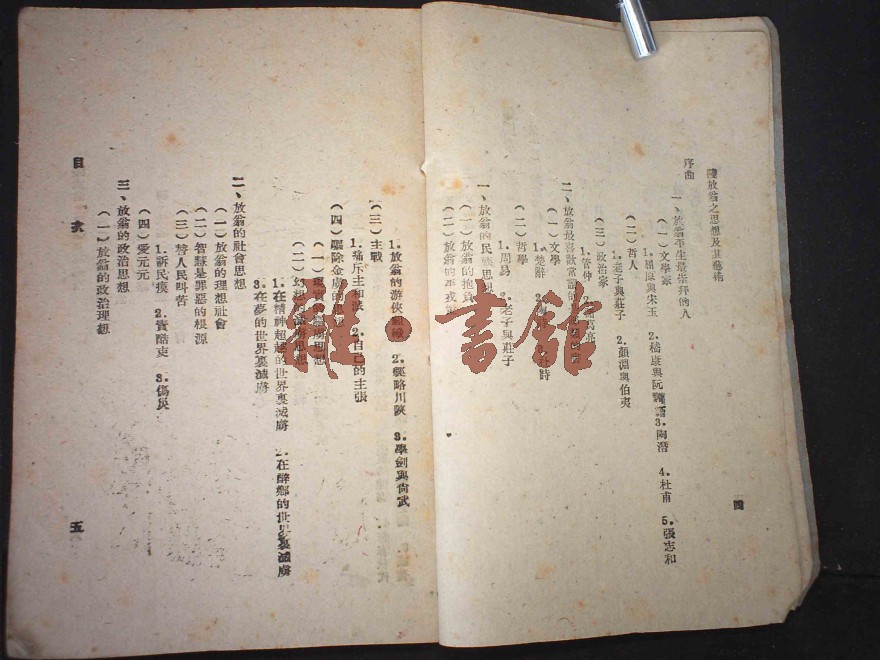 陸放翁之思想及其藝術
四
序曲
一、放翁平生最崇拜的人
(一)文學家
1.屈原與宋玉 2.嵇康與阮籍 3.陶潛 4.杜甫 5.張志和
(二)哲人
1.老子與莊子 2.顏淵與伯夷
(三)政治家
1.管仲 2.諸葛亮
二、放翁最喜歡常讀的
(一)文學
1.楚辭 2. 3.
(二)哲學
1.周易 2.老子與莊子
一、放翁的民族思想
(一)放翁的抱負
(二)放翁的從戎
1.放翁的游俠 2.經略川陝 3.學劍與尚武
(三)主戰
1.痛斥主和派 2.自己的主張
(四)驅除金虜的思想
(一)
(二)幻想的
1.在精神超越的世界裏滅虜 2.在醉鄉的世界裏滅虜
3.在夢的世界裏滅虜
二、放翁的社會思想
(一)放翁的理想社會
(二)智慧是罪惡的根源
(三)替人民叫苦
1.訴民瘼 2.責酷吏 3.傷災
(四)愛元元
三、放翁的政治思想
(一)放翁的政治理想
目次
五
雅·書館